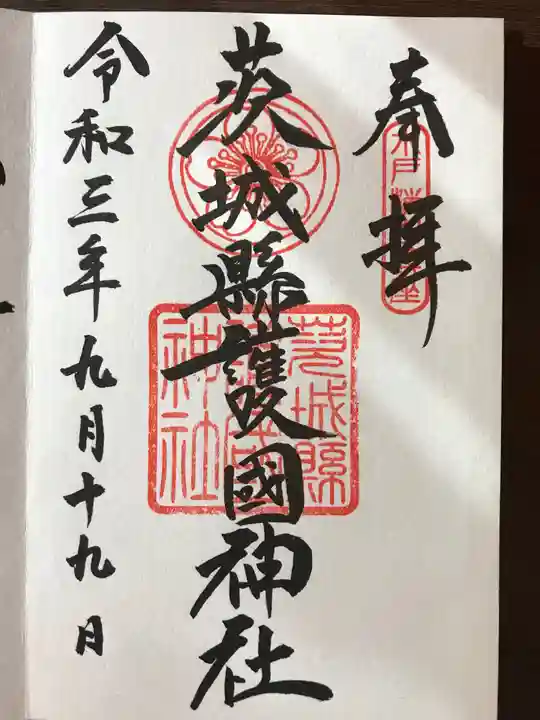 奉拝
茨城縣護國神社
茨城縣
護國
神社
令和三年九月十九月